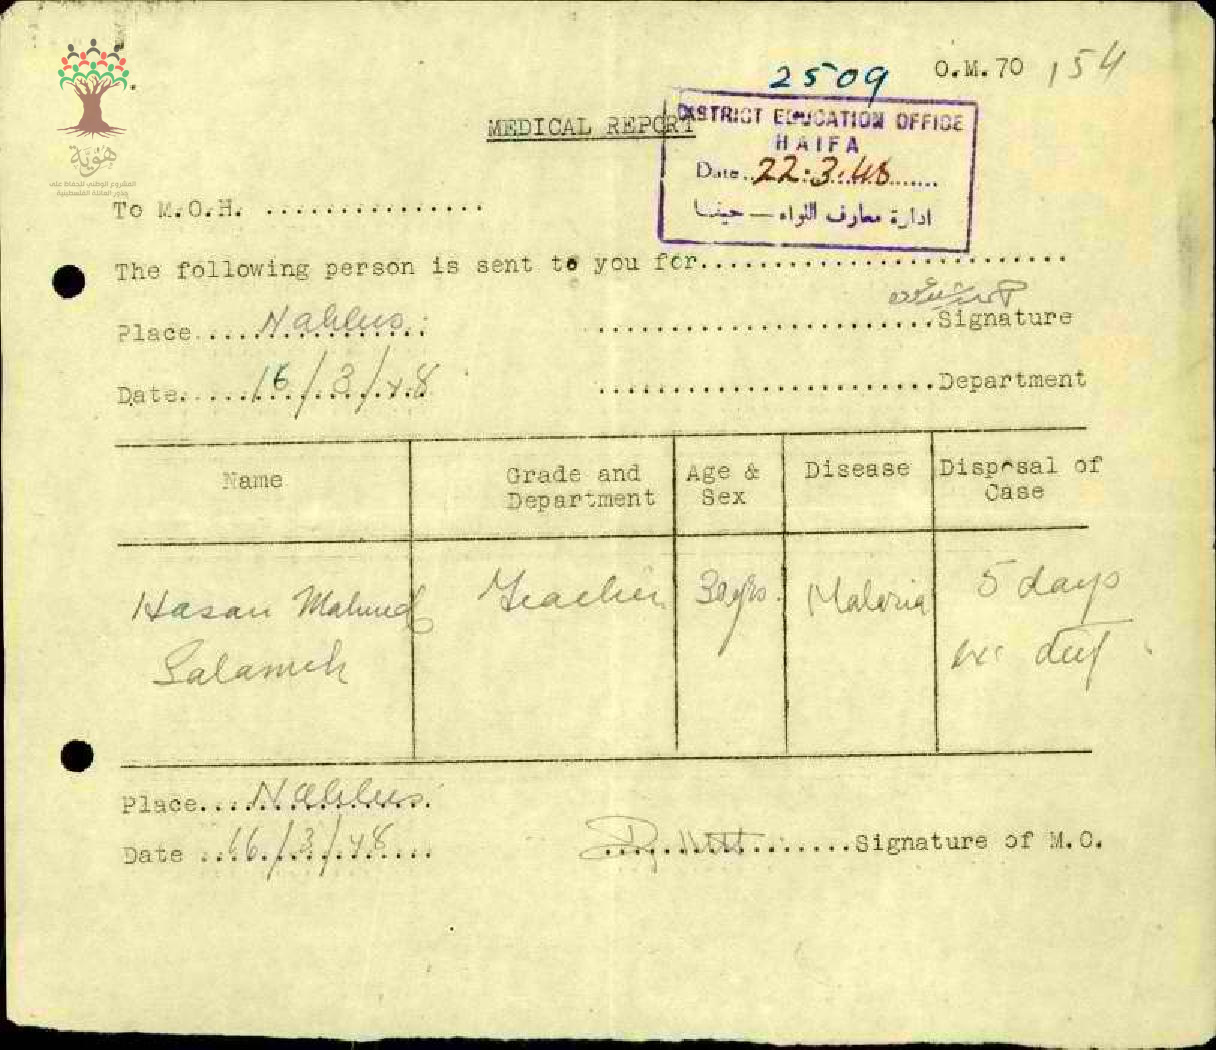 2509 O.M.70 154
MEDICAL REPORT
DISTRICT EDUCATION OFFICE
HAIFA
Date..22.3.48......
ادارة معارف اللواء — حيفا
هوية
المشروع الوطني للحفاظ على
جذور العائلة الفلسطينية
To M.O.H. ...............
The following person is sent to you for..........................
Place....Nablus
.......................Signature
Date......16/3/48
.......................Department
Name Grade and Department Age & Sex Disease Disposal of Case
Hasan Mahmud Teacher 30 yrs. Malaria 5 days
Salameh
Place....Nablus
Date ..16/3/48
.................Signature of M.O.